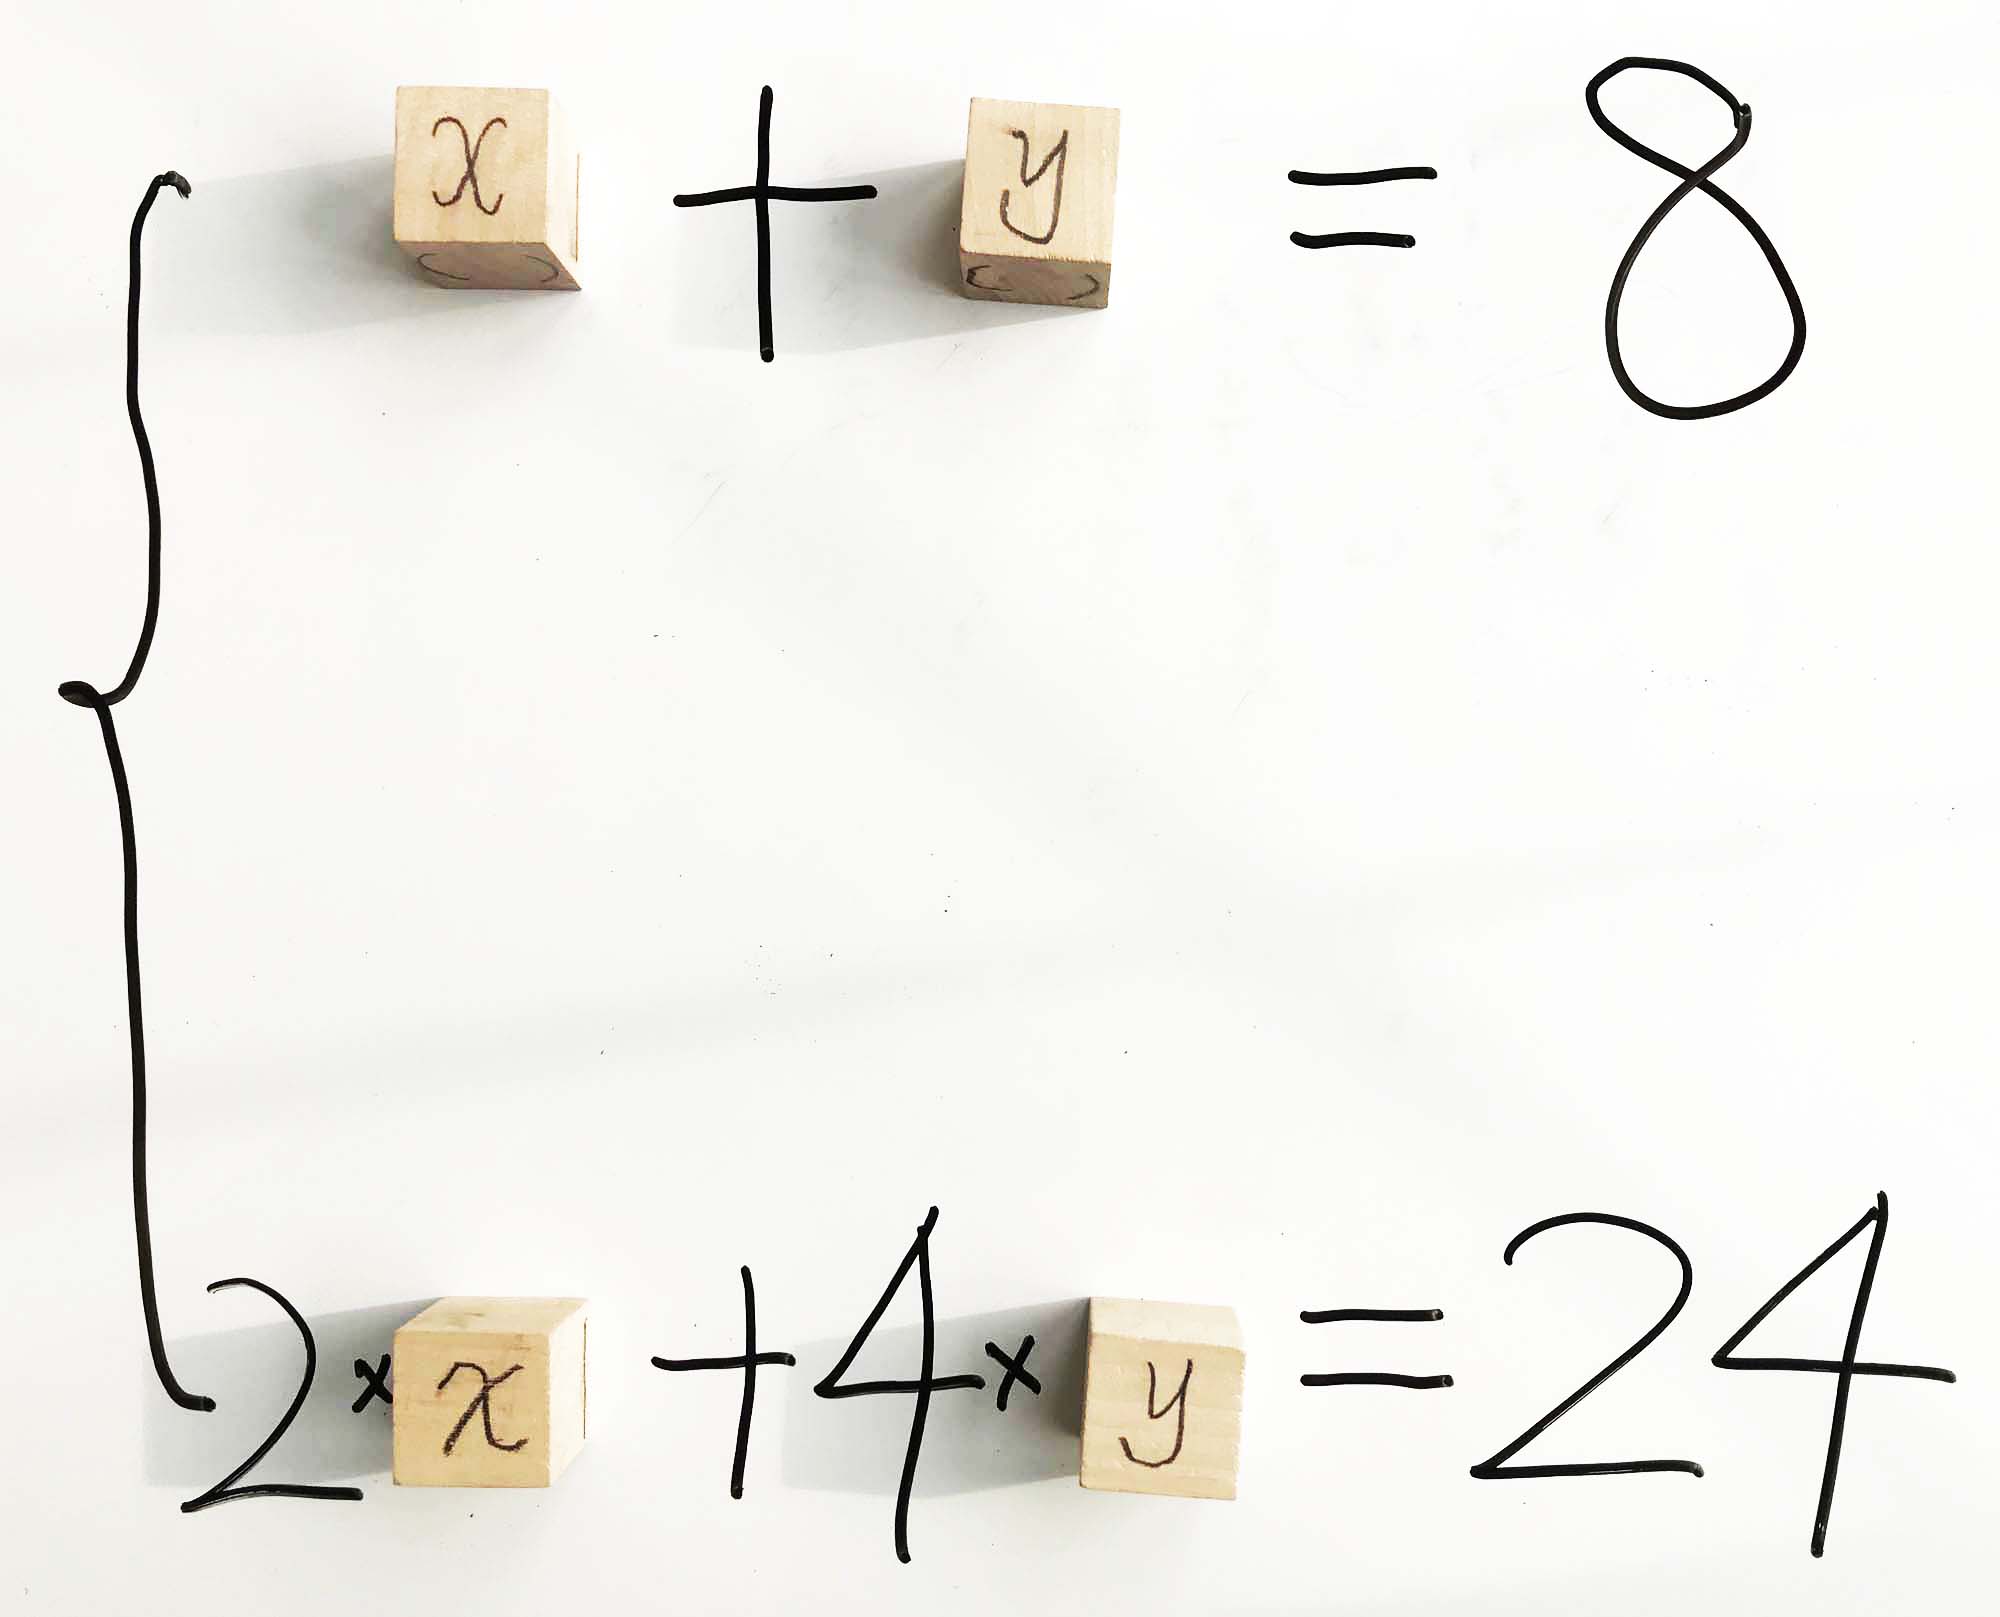 x + y = 8
2 × x + 4 × y = 24